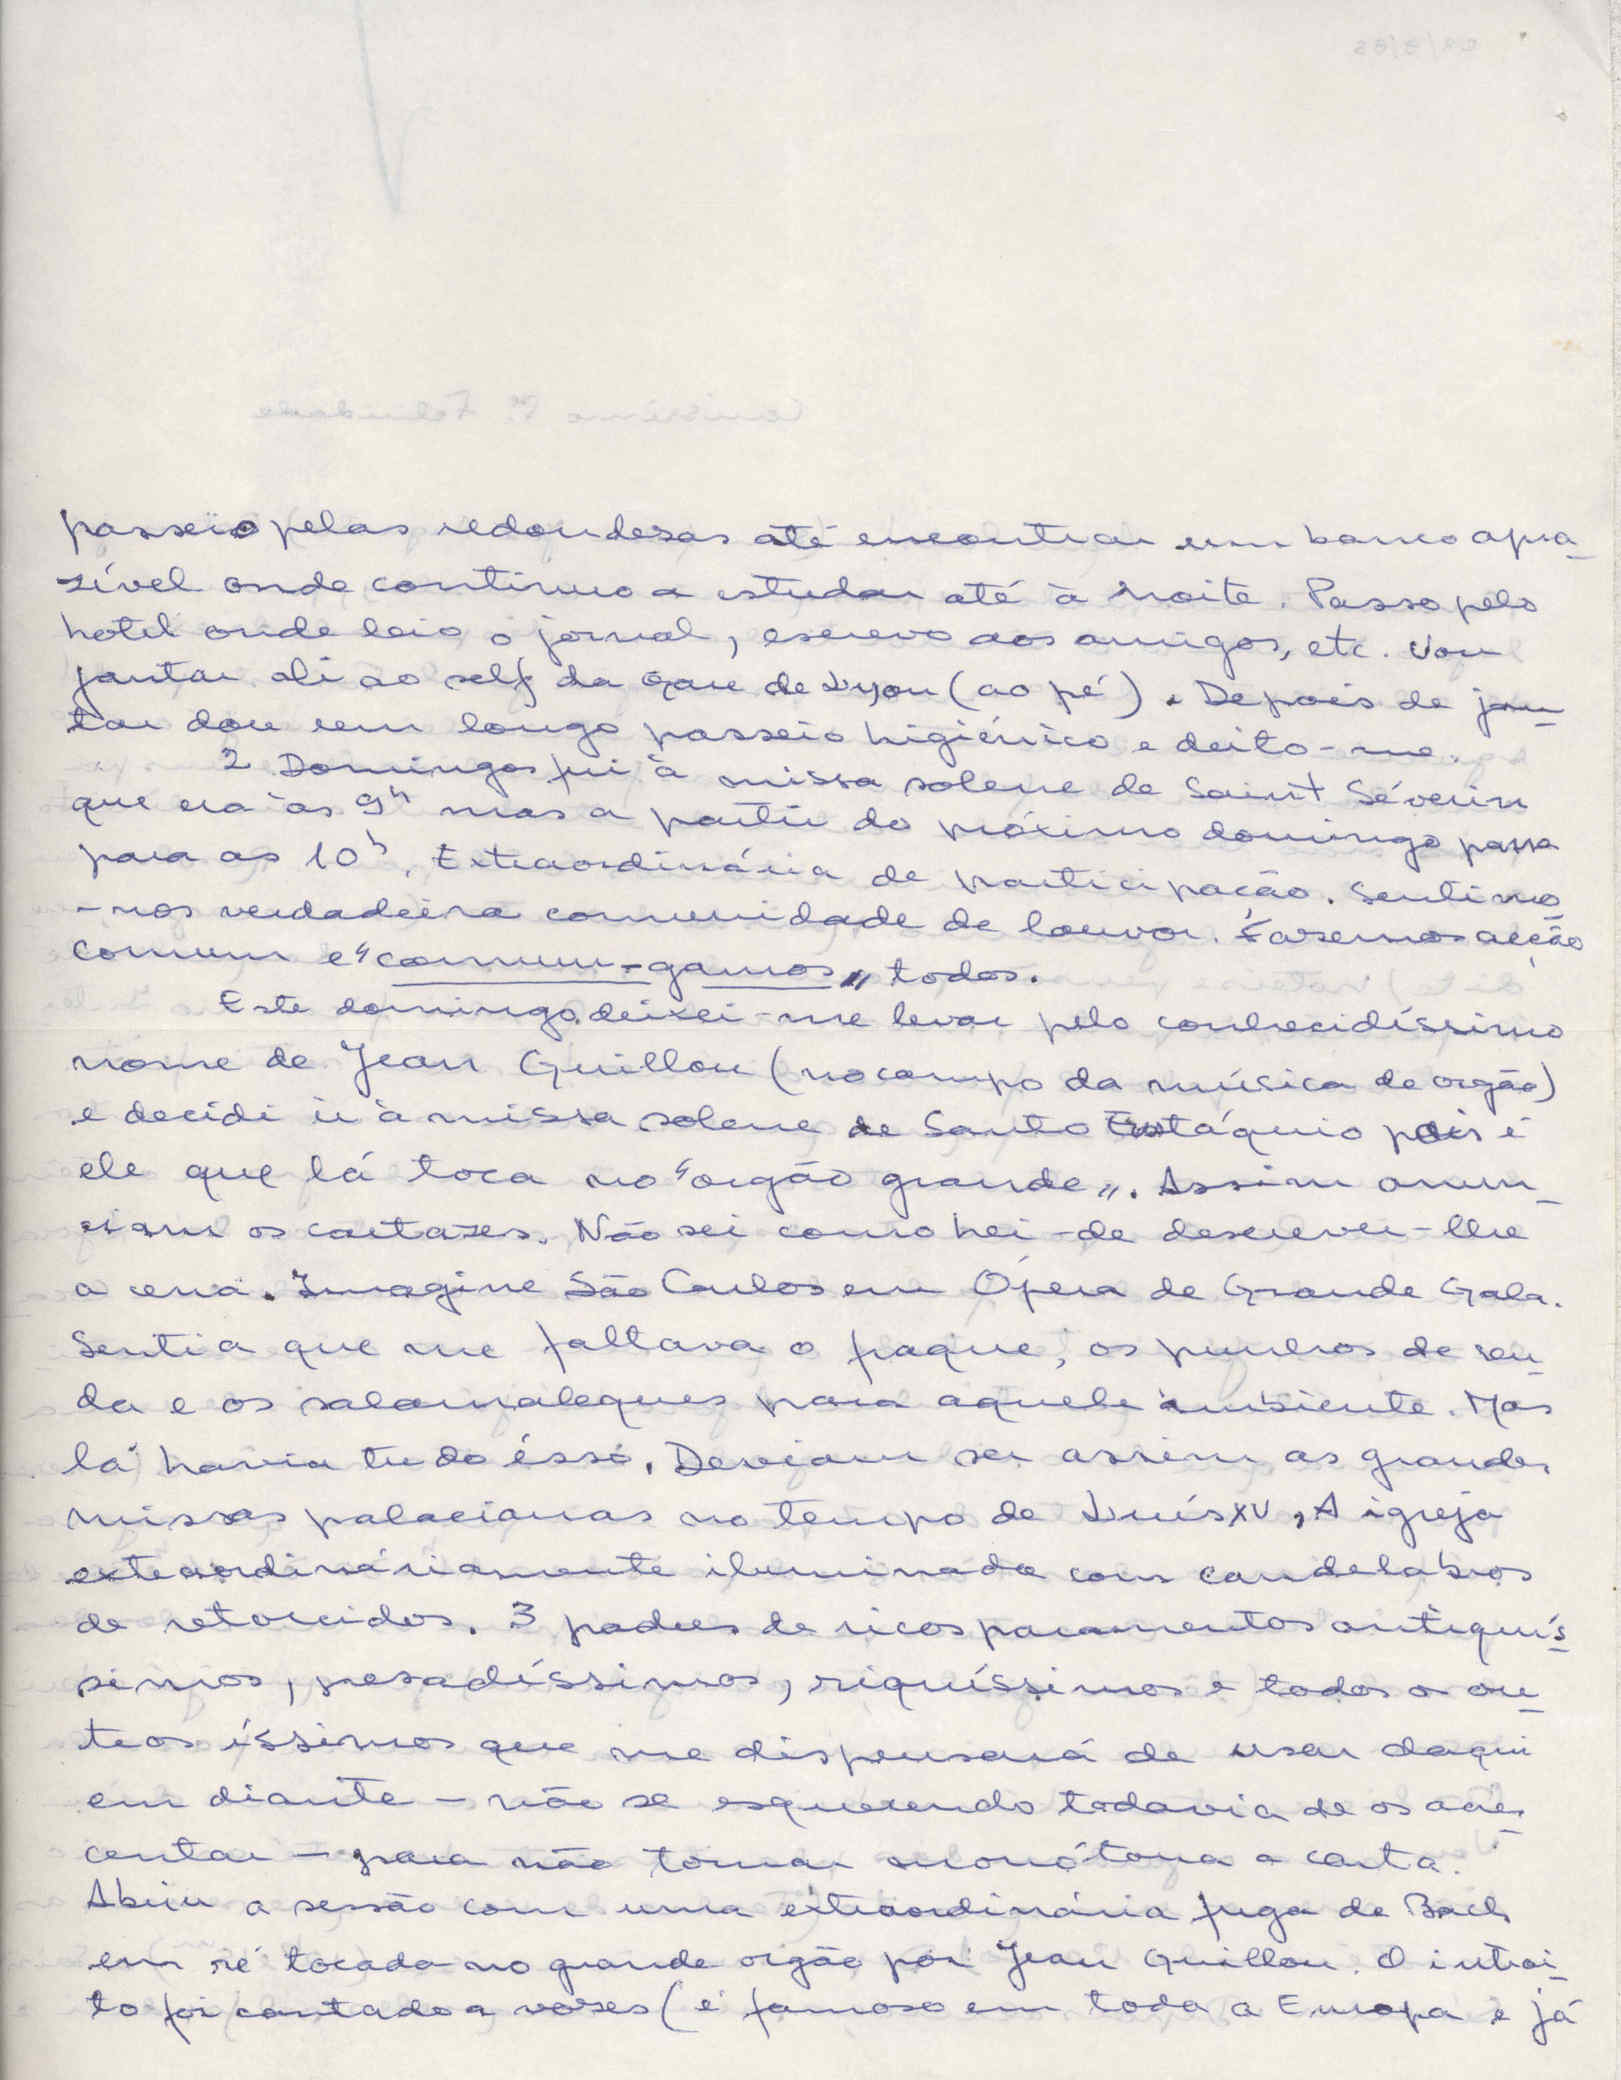 passeio pelas redondezas até encontrar um banco apra-
zível onde continuo a estudar até à noite. Passo pelo
hotel onde leio o jornal, escrevo aos amigos, etc. Vou
jantar ali ao self da Gare de Lyon (ao pé). Depois de jan-
tar dou um longo passeio higiénico e deito-me.
2 Domingos fui à missa solene de Saint Séverin
que era às 9h mas a partir do próximo domingo passa
para as 10h. Extraordinária de participação. Sentimo-
-nos verdadeira comunidade de louvor. Fazemos acção
comum e "comum-gamos" todos.
Este domingo deixei-me levar pelo conhecidíssimo
nome de Jean Guillou (no campo da música de orgão)
e decidi ir à missa solene de Santo Eustáquio pois é
ele que lá toca no "orgão grande". Assim anun-
ciam os cartazes. Não sei como hei-de descrever-lhe
a cena. Imagine São Carlos em Ópera de Grande Gala.
Sentia que me faltava o fraque, os punhos de ren-
da e os salamaleques para aquele ambiente. Mas
lá havia tudo isso. Deviam ser assim as grandes
missas palacianas no tempo de Luís XV. A igreja
extraordináriamente iluminada com candelabros
de retorcidos. 3 padres de ricos paramentos antiquís-
simos, pesadíssimos, riquíssimos e todos os ou-
tros íssimos que me dispensará de usar daqui
em diante - não se esquecendo todavia de os acres-
centar - para não tornar monótona a carta.
Abriu a sessão com uma extraordinária fuga de Bach
em ré tocada no grande orgão por Jean Guillou. O introi-
to foi cantado a vozes (é famoso em toda a Europa e já